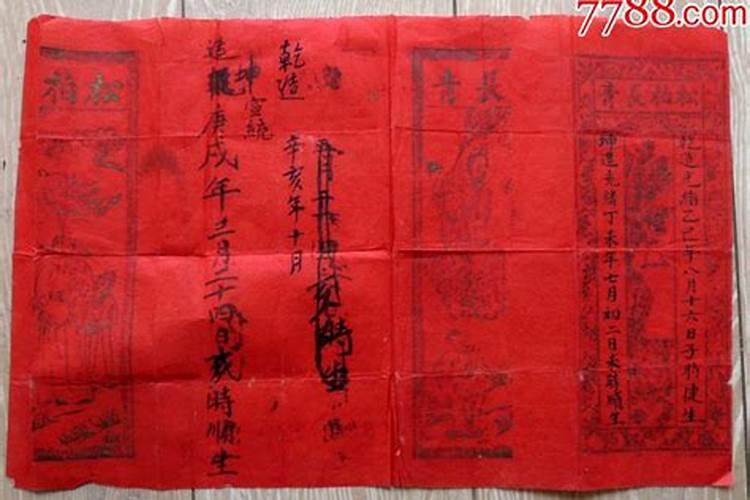 7788.com
松柏長青
乾造光緒乙巳年八月十六日子時健生
坤造光緒丁未年七月初二日未時順生
長青
時生
乾造
宣統
辛亥年十月
坤
造庚戌年三月二十四日亥時順生
松柏